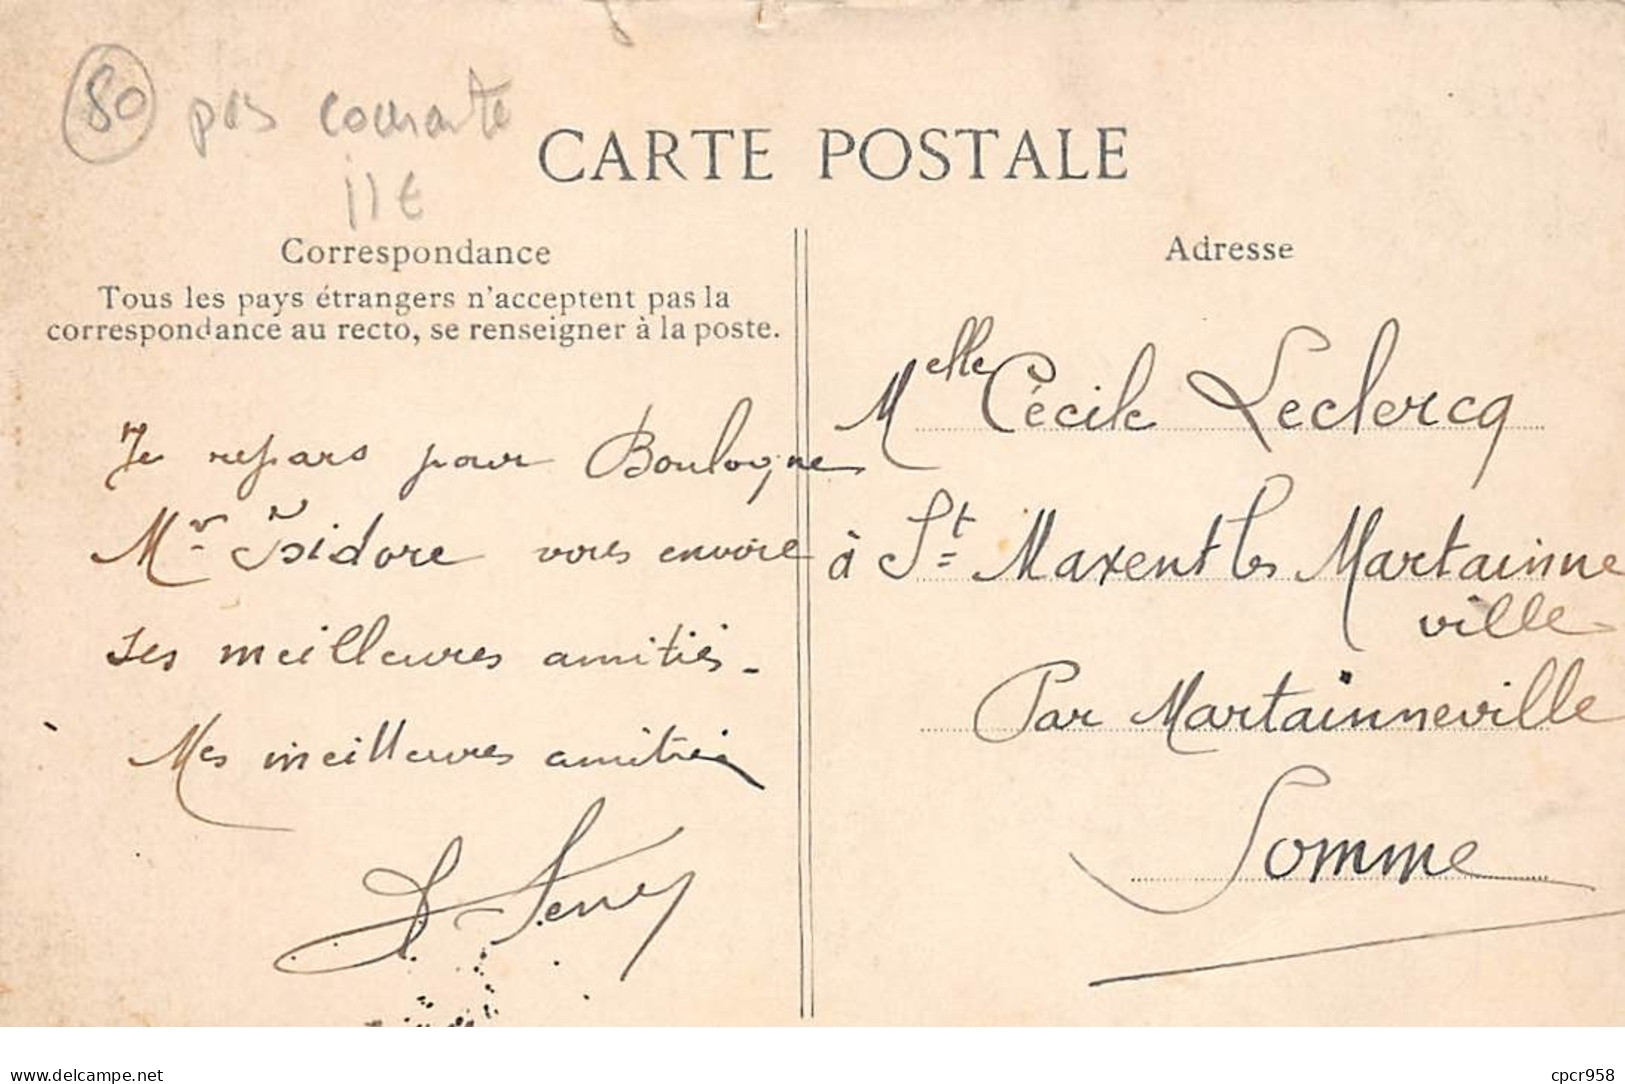 80 pas courante
11€
CARTE POSTALE
Correspondance
Tous les pays étrangers n'acceptent pas la
correspondance au recto, se renseigner à la poste.
Je repars pour Boulogne
Mr Isidore vous envoie
ses meilleures amitiés -
Mes meilleures amitiés
Adresse
Melle Cécile Leclercq
à St Maxent les Martainne
ville
Par Martainneville
Somme
www.delcampe.net
cpcr958